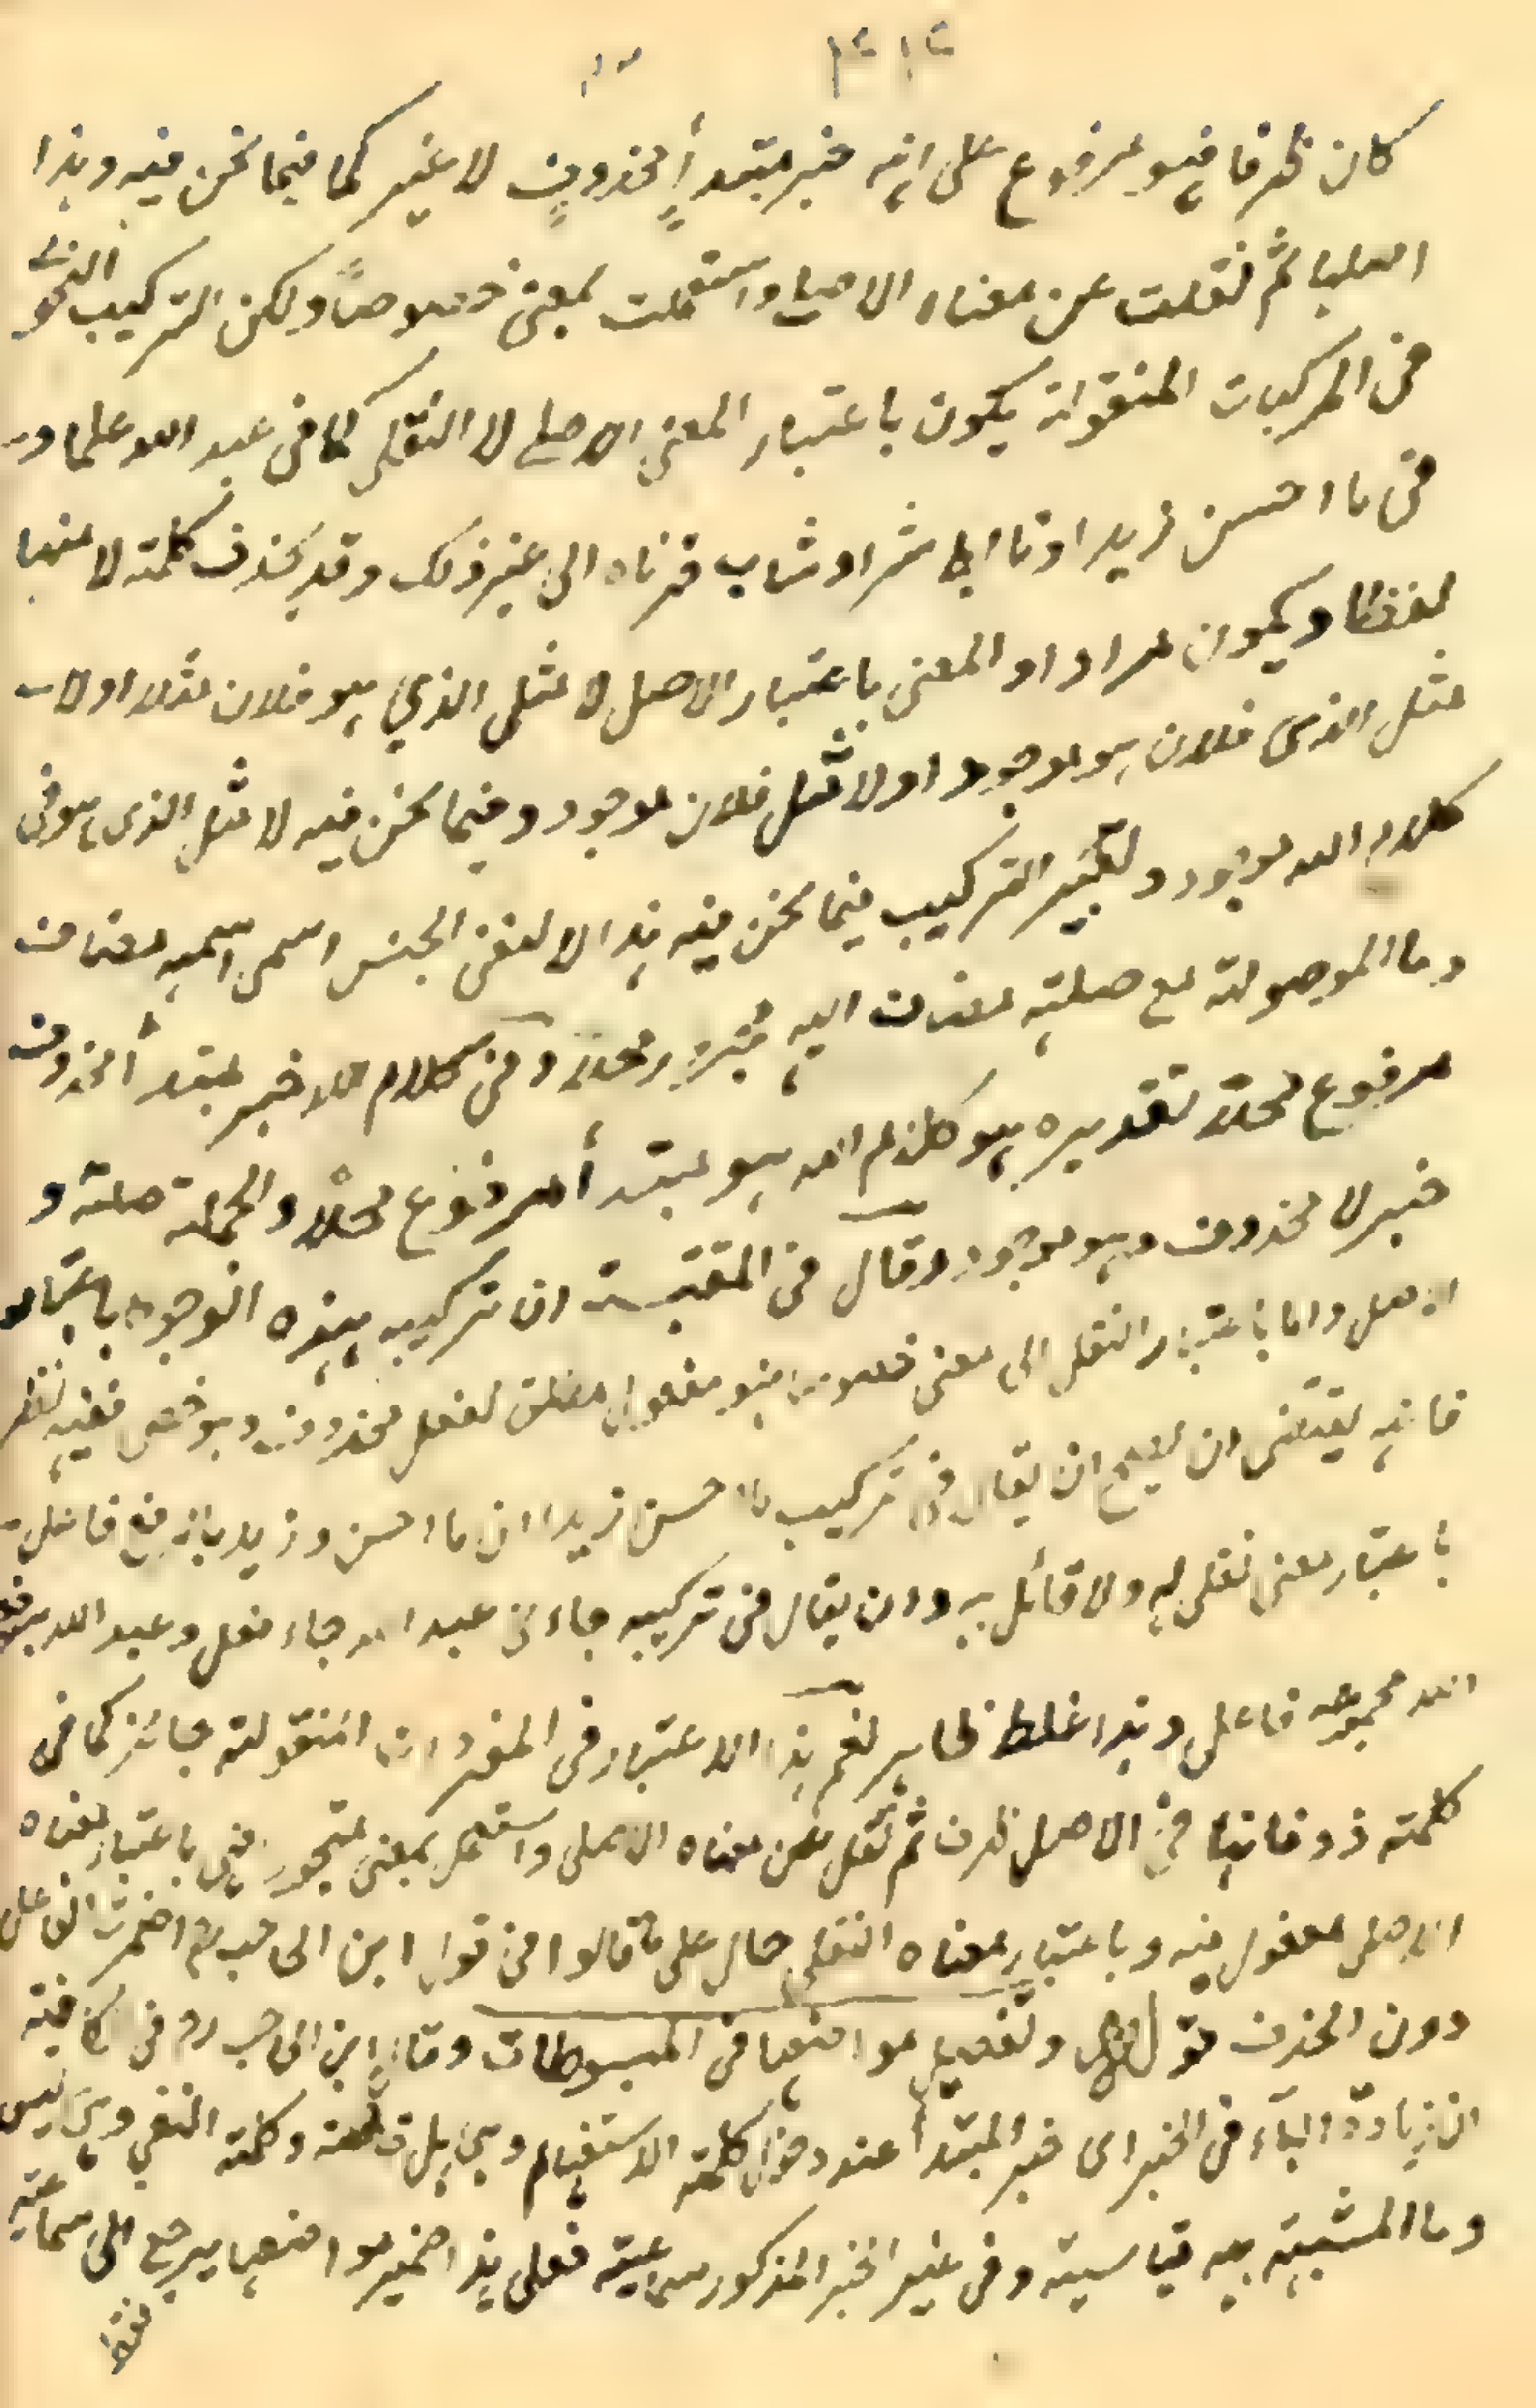 كان ظرفا فهو مرفوع على انه خبر مبتدأ محذوف لا غير كما فيما نحن فيه وهذا
اصلها ثم نقلت عن معناه الاصلي واستعملت بمعنى خصوصاً ولكن التركيب النحوي
في المركبات المنقولة يكون باعتبار المعنى الاصلي لا النقلي كما في عبد الله علما و
في ما احسن زيدا وتابط شرا وشاب قرناه الى غير ذلك وقد يحذف كلمة لا منها
لفظا ويكون مرادا والمعنى باعتبار الاصل لا مثل الذي هو فلان مثلا اولا
مثل الذى فلان هو موجود اولا مثل فلان موجود وفيما نحن فيه لا مثل الذى هو في
كلام الله موجود وتغيير التركيب فيما نحن فيه هذا لا لنفى الجنس اسمى اسمه مضاف
وما الموصولة مع صلته مضاف اليه محلا وفى كلام الله خبر مبتدأ محذوف
مرفوع محلا تقديره هو كلام الله هو مبتدأ مرفوع محلا والجملة صلة و
خبر لا محذوف وهو موجود وقال في المقتبسة ان تركيبه بهذه الوجوه باعتبار
الاصل واما باعتبار النقل الى معنى خصوصا فهو مفعول مطلق لفعل محذوف وهو خص ففيه نظر
فانه يقتضى ان يصح ان يقال في تركيب ما احسن زيدا ان ما احسن وزيد بالرفع فاعله
باعتبار معنى نقلى له ولا قائل به وان يقال في تركيبه جاءنى عبد الله جاء فعل وعبد الله
الله مجموعه فاعل وهذا غلط ظاهر نعم هذا الاعتبار فى المفردات المنقولة جائز كما فى
كلمة ذو فانها في الاصل ظرف ثم نقل عن معناه الاصلى واستعمل بمعنى متجوز فهى باعتبار معناه
الاصلى مفعول فيه وباعتبار معناه النقلى حال على ما قالوا في قول ابن الحاجب ثم اضمرت الف على
دون الحذف وتفصيل مواضعها في المبسوطات وقال ابن الحاجب ره في كافيته
ان زيادة الباء في الخبر اى خبر المبتدأ عند دخول كلمة الاستفهام وهي هل وكلمة النفي وهي ليس
وما المشبهة به قياسية وفى غير الخبر المذكور سماعية فعلى هذا ضمير مواضعها يرجع الى سماعية